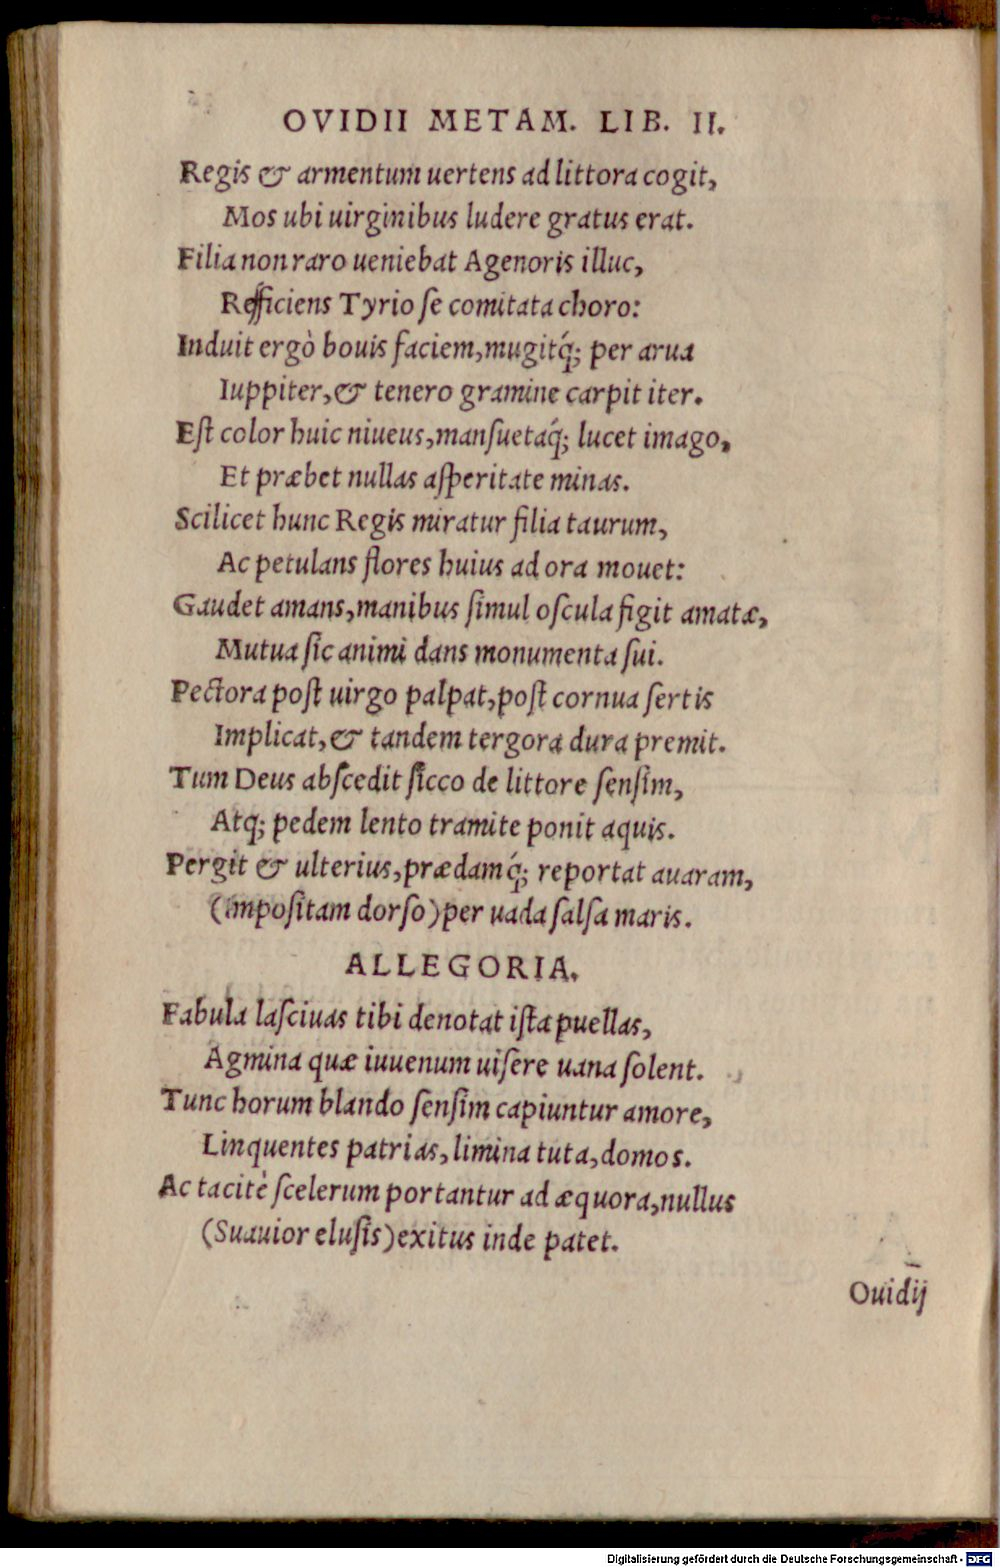 OVIDII METAM. LIB. II.
Regis & armentum uertens ad littora cogit,
Mos ubi uirginibus ludere gratus erat.
Filia non raro ueniebat Agenoris illuc,
Refficiens Tyrio ſe comitata choro:
Induit ergò bouis faciem, mugitq́; per arua
Iuppiter, & tenero gramine carpit iter.
Eſt color huic niueus, manſuetaq́; lucet imago,
Et præbet nullas aſperitate minas.
Scilicet hunc Regis miratur filia taurum,
Ac petulans flores huius ad ora mouet:
Gaudet amans, manibus ſimul oſcula figit amatæ,
Mutua ſic animi dans monumenta ſui.
Pectora poſt uirgo palpat, poſt cornua ſertis
Implicat, & tandem tergora dura premit.
Tum Deus abſcedit ſicco de littore ſenſim,
Atq; pedem lento tramite ponit aquis.
Pergit & ulterius, prædamq́; reportat auaram,
(impoſitam dorſo) per uada ſalſa maris.
ALLEGORIA.
Fabula laſciuas tibi denotat iſta puellas,
Agmina quæ iuuenum uiſere uana ſolent.
Tunc horum blando ſenſim capiuntur amore,
Linquentes patrias, limina tuta, domos.
Ac tacitè ſcelerum portantur ad æquora, nullus
(Suauior eluſis) exitus inde patet.
Ouidij
Digitalisierung gefördert durch die Deutsche Forschungsgemeinschaft - DFG